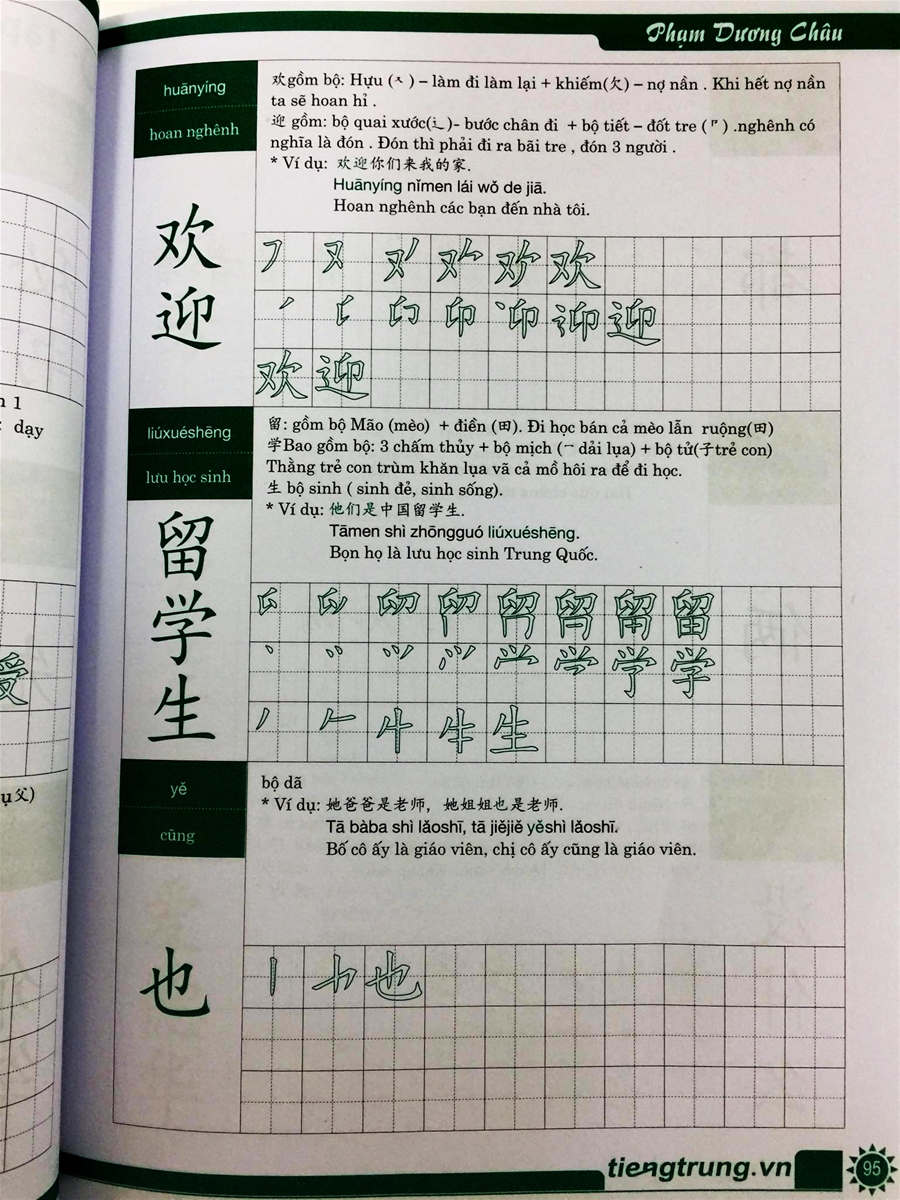 Phạm Dương Châu
n 1
: dạy
受
ụ父)
huānyíng
hoan nghênh
欢
迎
欢gồm bộ: Hựu (ㄡ) – làm đi làm lại + khiếm(欠) – nợ nần . Khi hết nợ nần
ta sẽ hoan hỉ .
迎 gồm: bộ quai xước(辶)- bước chân đi + bộ tiết – đốt tre (卩) .nghênh có
nghĩa là đón . Đón thì phải đi ra bãi tre , đón 3 người .
* Ví dụ: 欢迎你们来我的家.
Huānyíng nǐmen lái wǒ de jiā.
Hoan nghênh các bạn đến nhà tôi.
欢
迎
欢 迎
liúxuéshēng
lưu học sinh
留
学
生
留: gồm bộ Mão (mèo) + điền (田). Đi học bán cả mèo lẫn ruộng(田)
学Bao gồm bộ: 3 chấm thủy + bộ mịch (冖 dải lụa) + bộ tử(子trẻ con)
Thằng trẻ con trùm khăn lụa vã cả mồ hôi ra để đi học.
生 bộ sinh ( sinh đẻ, sinh sống).
* Ví dụ: 他们是中国留学生.
Tāmen shì zhōngguó liúxuéshēng.
Bọn họ là lưu học sinh Trung Quốc.
留
学
生
yě
cũng
也
bộ dã
* Ví dụ: 她爸爸是老师，她姐姐也是老师.
Tā bàba shì lǎoshī, tā jiějiě yěshì lǎoshī.
Bố cô ấy là giáo viên, chị cô ấy cũng là giáo viên.
也
tiengtrung.vn
95